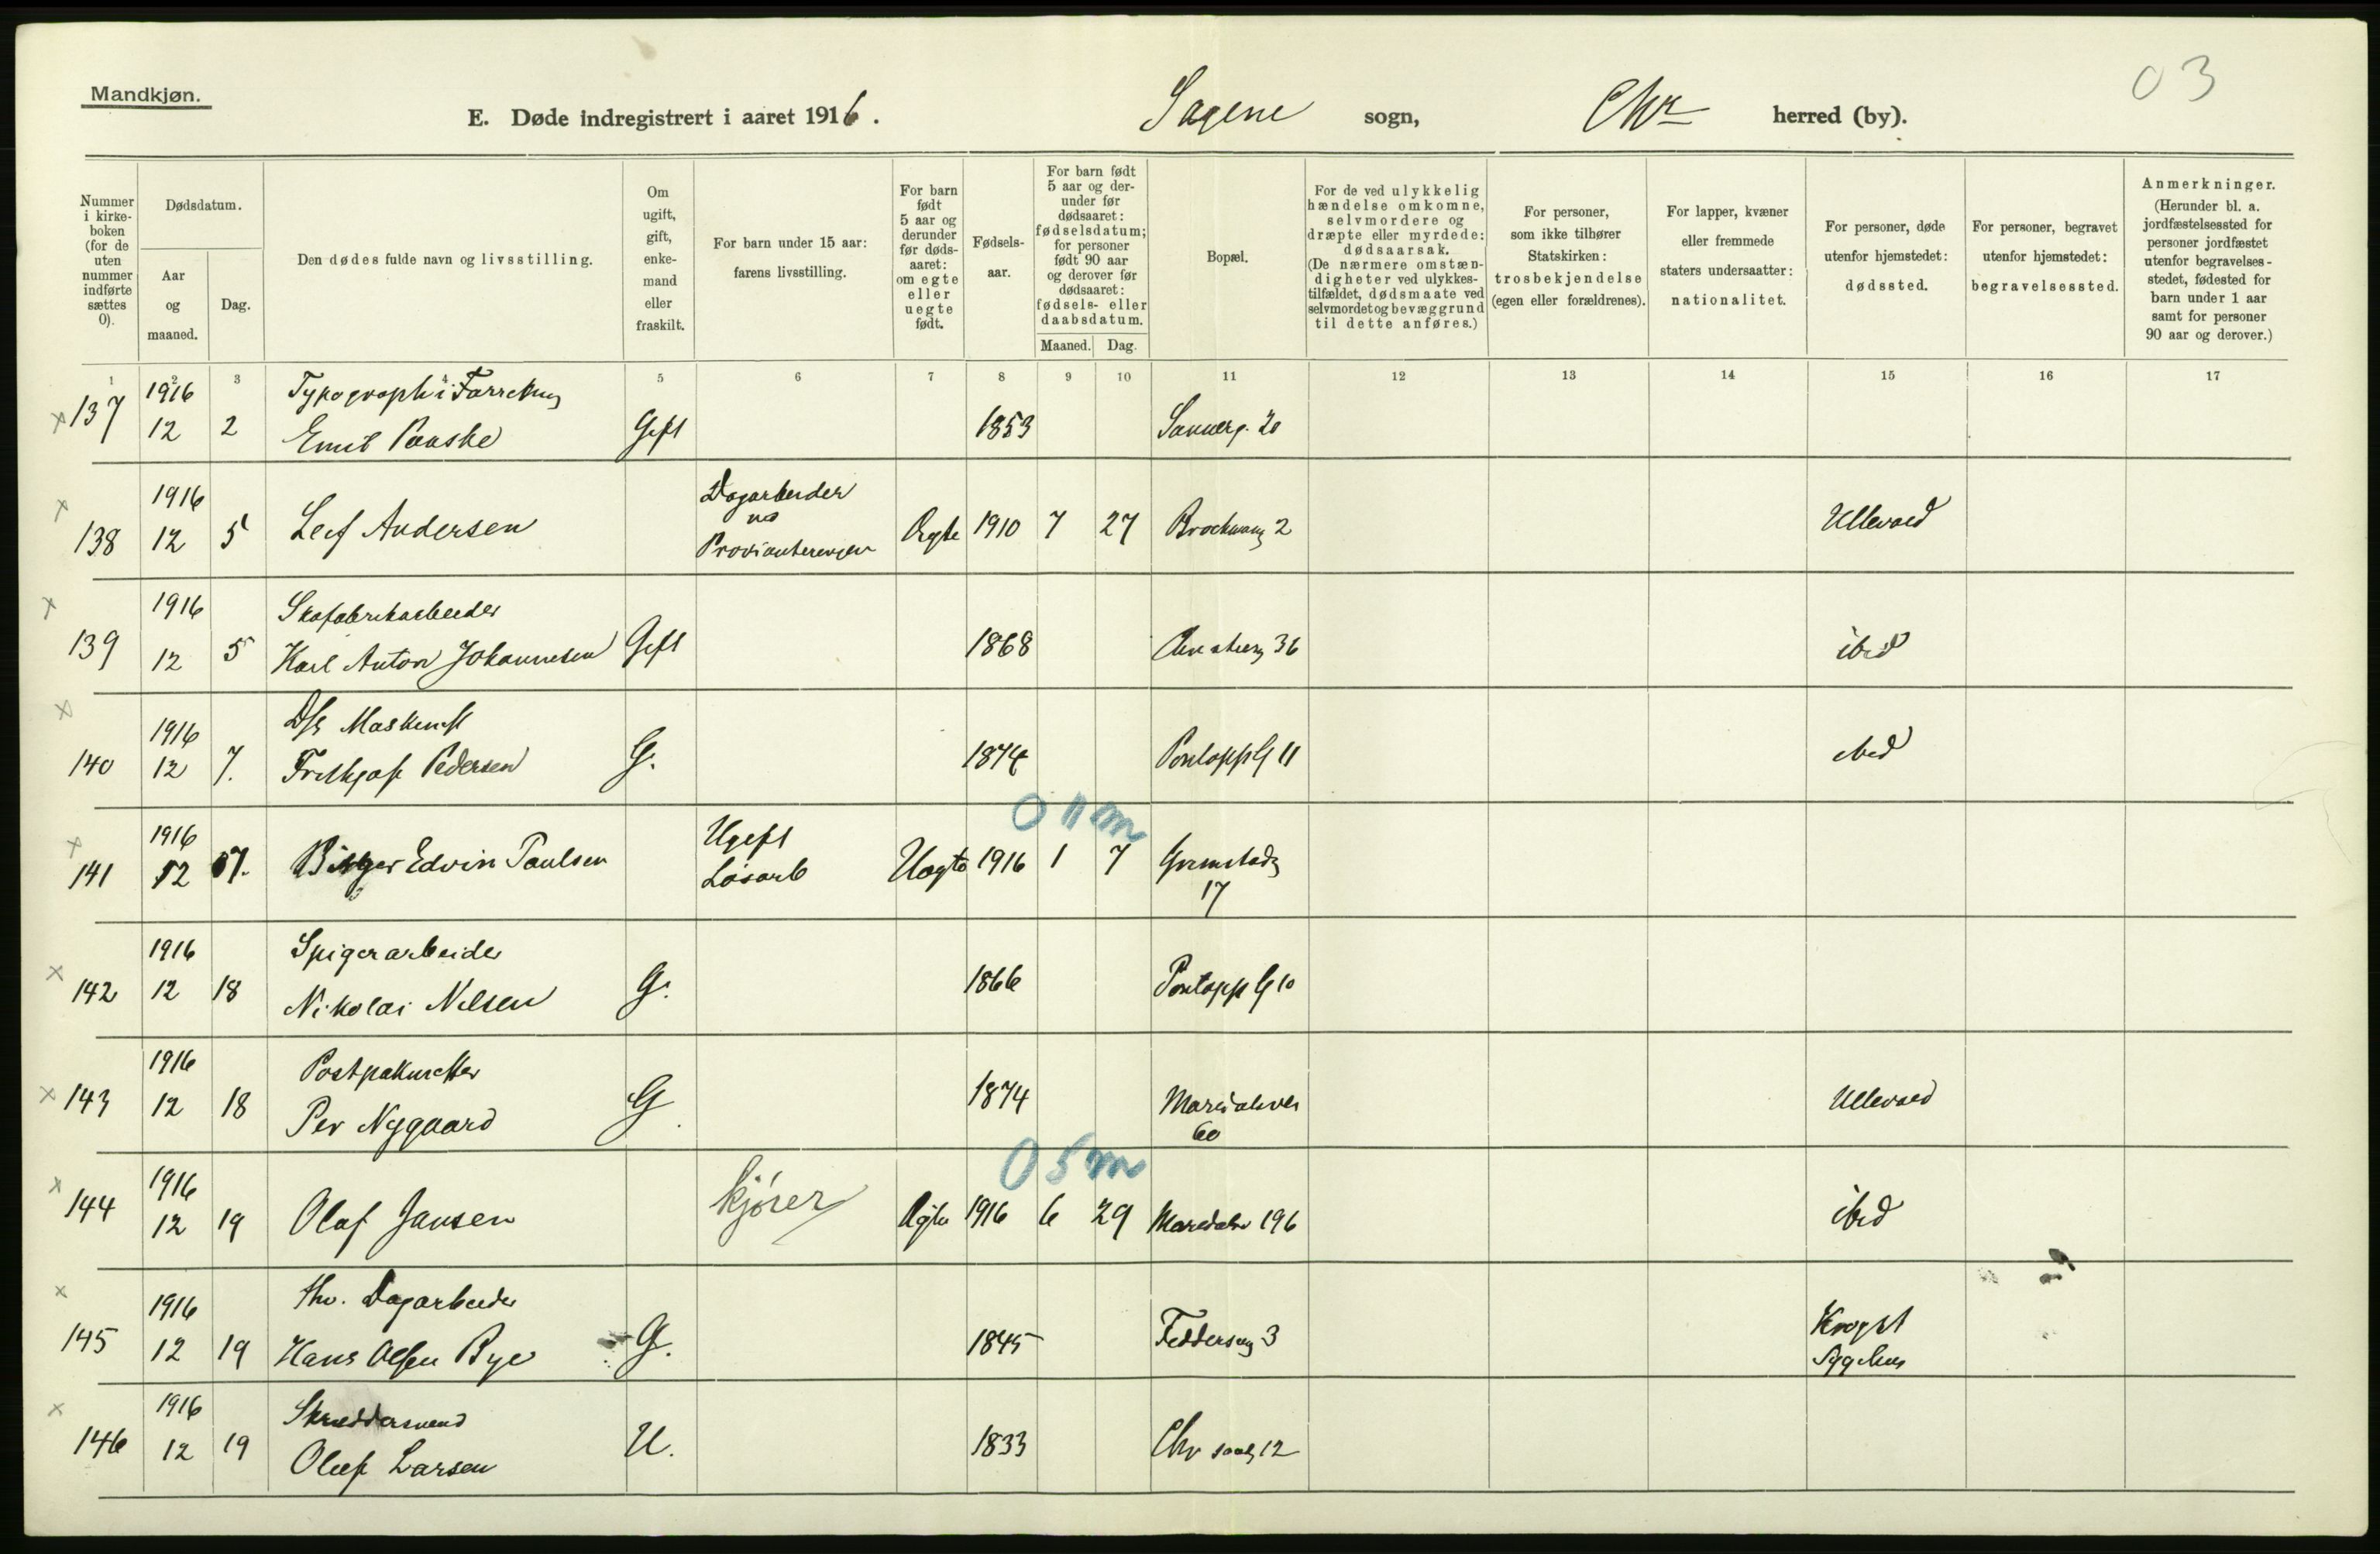 Mandkjøn.
03
E. Døde indregistrert i aaret 1916.
Sagene sogn,
Chr herred (by).
Nummer i kirke-boken (for de uten nummer indførte sættes 0).
Dødsdatum.
Aar og maaned.
Dag.
Den dødes fulde navn og livsstilling.
Om ugift, gift, enke-mand eller fraskilt.
For barn under 15 aar: farens livsstilling.
For barn født 5 aar og derunder før døds-aaret: om egte eller uegte født.
Fødsels-aar.
For barn født 5 aar og der-under før dødsaaret: fødselsdatum; for personer født 90 aar og derover før dødsaaret: fødsels- eller daabsdatum.
Maaned. Dag.
Bopæl.
For de ved ulykkelig hændelse omkomne, selvmordere og dræpte eller myrdede: dødsaarsak. (De nærmere omstæn-digheter ved ulykkes-tilfældet, dødsmaate ved selvmordet og bevæggrund til dette anføres.)
For personer, som ikke tilhører Statskirken: trosbekjendelse (egen eller forældrenes).
For lapper, kvæner eller fremmede staters undersaatter: nationalitet.
For personer, døde utenfor hjemstedet: dødssted.
For personer, begravet utenfor hjemstedet: begravelsessted.
Anmerkninger. (Herunder bl. a. jordfæstelsessted for personer jordfæstet utenfor begravelses-stedet, fødested for barn under 1 aar samt for personer 90 aar og derover.)
1 2 3 4 5 6 7 8 9 10 11 12 13 14 15 16 17
1916 Typograph i
x 137 12 2 Emil Gift 1853 Sannerg. 20
x 1916 Dagarbeider
138 12 5 Leif Andersen Ægte 1910 7 27 2 Ullevaal
x 1916 Skofabrikarbeider
139 12 5 Karl Anton Johannesen Gift 1868 36 ibid
x 1916 Maskinist
140 12 7. Frithjof Pedersen G. 1874 Pontopp G 11 ibid
0 11 m
x 1916 Ugift
141 12 7. Birger Edvin Paulsen Løsarb Uægte 1916 1 7 Grimstadg
17
x 1916 Spigerarbeider
142 12 18 Nikolai Nilsen G. 1866 Pontopp G 10
1916 Postpakmester
x 143 12 18 Per Nygaard G. 1874 Maridalsvei Ullevaal
60
0 5 m
x 1916
144 12 19 Olaf Jansen kjører Ægte 1916 6 29 Maridalsv 196 ibid
x 1916 fhv. Dagarbeider
145 12 19 Hans Olsen Bye G. 1845 Fedderseng 3 Krogst
Sygehus
x 1916 Skræddersvend
146 12 19 Oluf Larsen U. 1833 12